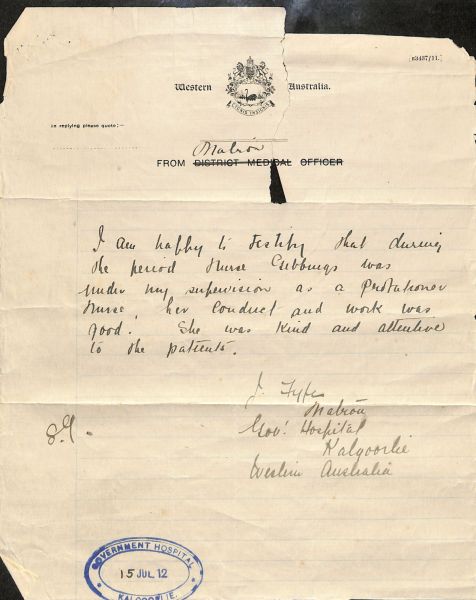 [E3487/11.]
Western Australia.
CYGNIS INSIGNIS
In replying please quote:—
Matron
FROM DISTRICT MEDICAL OFFICER
I am happy to testify that during
the period Nurse Gibbings was
under my supervision as a Probationer
Nurse, her conduct and work was
good. She was kind and attentive
to the patients.
J. Fyfe
Matron
Gov! Hospital
Kalgoorlie
Western Australia
GOVERNMENT HOSPITAL
15 JUL 12
KALGOORLIE.